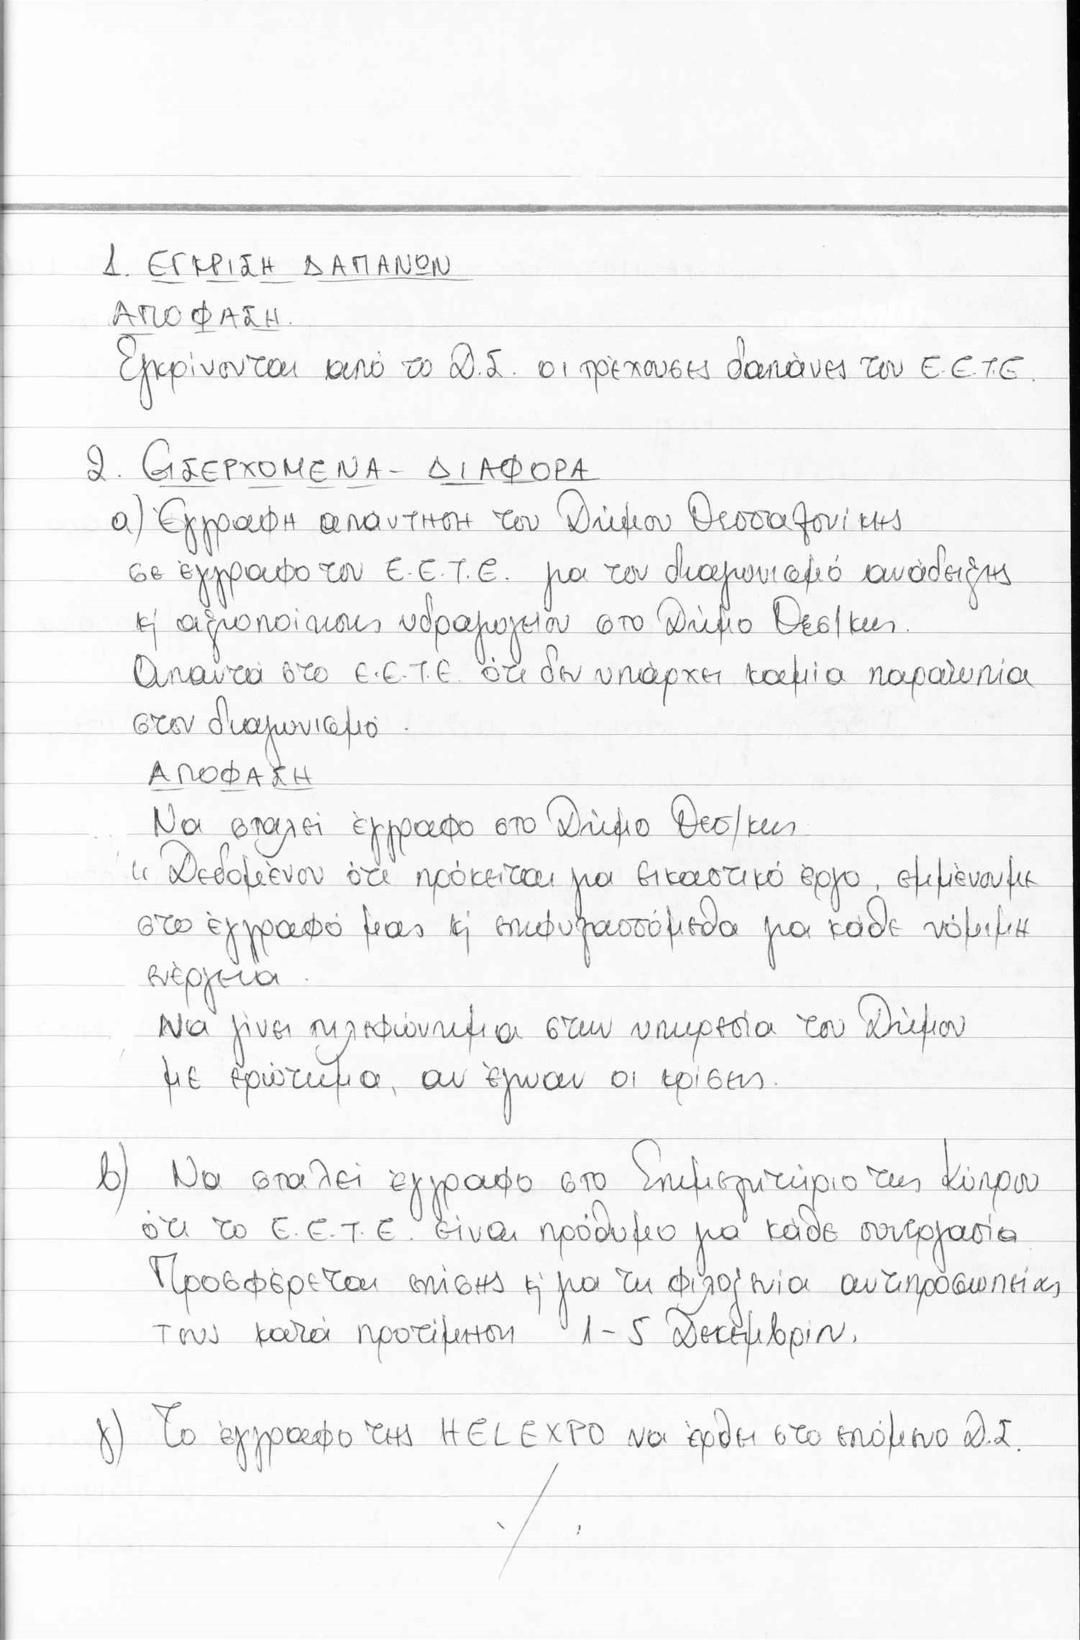 1. ΕΓΚΡΙΣΗ ΔΑΠΑΝΩΝ
ΑΠΟΦΑΣΗ.
Εγκρίνονται από το Δ.Σ. οι τρέχουσες δαπάνες του Ε.Ε.Τ.Ε.
2. ΕΙΣΕΡΧΟΜΕΝΑ - ΔΙΑΦΟΡΑ
α) Έγγραφη απάντηση του Δήμου Θεσσαλονίκης
σε έγγραφο του Ε.Ε.Τ.Ε. για τον διαγωνισμό ανάδειξης
κ' αξιοποίησης υδραγωγείου στο Δήμο Θεσ/κης.
Απαντά στο Ε.Ε.Τ.Ε. ότι δεν υπάρχει καμία παρατυπία
στον διαγωνισμό.
ΑΠΟΦΑΣΗ
Να σταλεί έγγραφο στο Δήμο Θεσ/κης
"Δεδομένου ότι πρόκειται για εικαστικό έργο, εμμένουμε
στο έγγραφό μας κ' επιφυλασσόμεθα για κάθε νόμιμη
ενέργεια.
Να γίνει τηλεφώνημα στην υπηρεσία του Δήμου
με ερώτημα, αν έγιναν οι κρίσεις.
β) Να σταλεί έγγραφο στο Επιμελητήριο της Κύπρου
ότι το Ε.Ε.Τ.Ε. είναι πρόθυμο για κάθε συνεργασία
Προσφέρεται επίσης κ' για τη φιλοξενία αντιπροσωπείας
τους κατά προτίμηση 1-5 Δεκεμβρίου.
γ) Το έγγραφο της HELEXPO να έρθει στο επόμενο Δ.Σ.